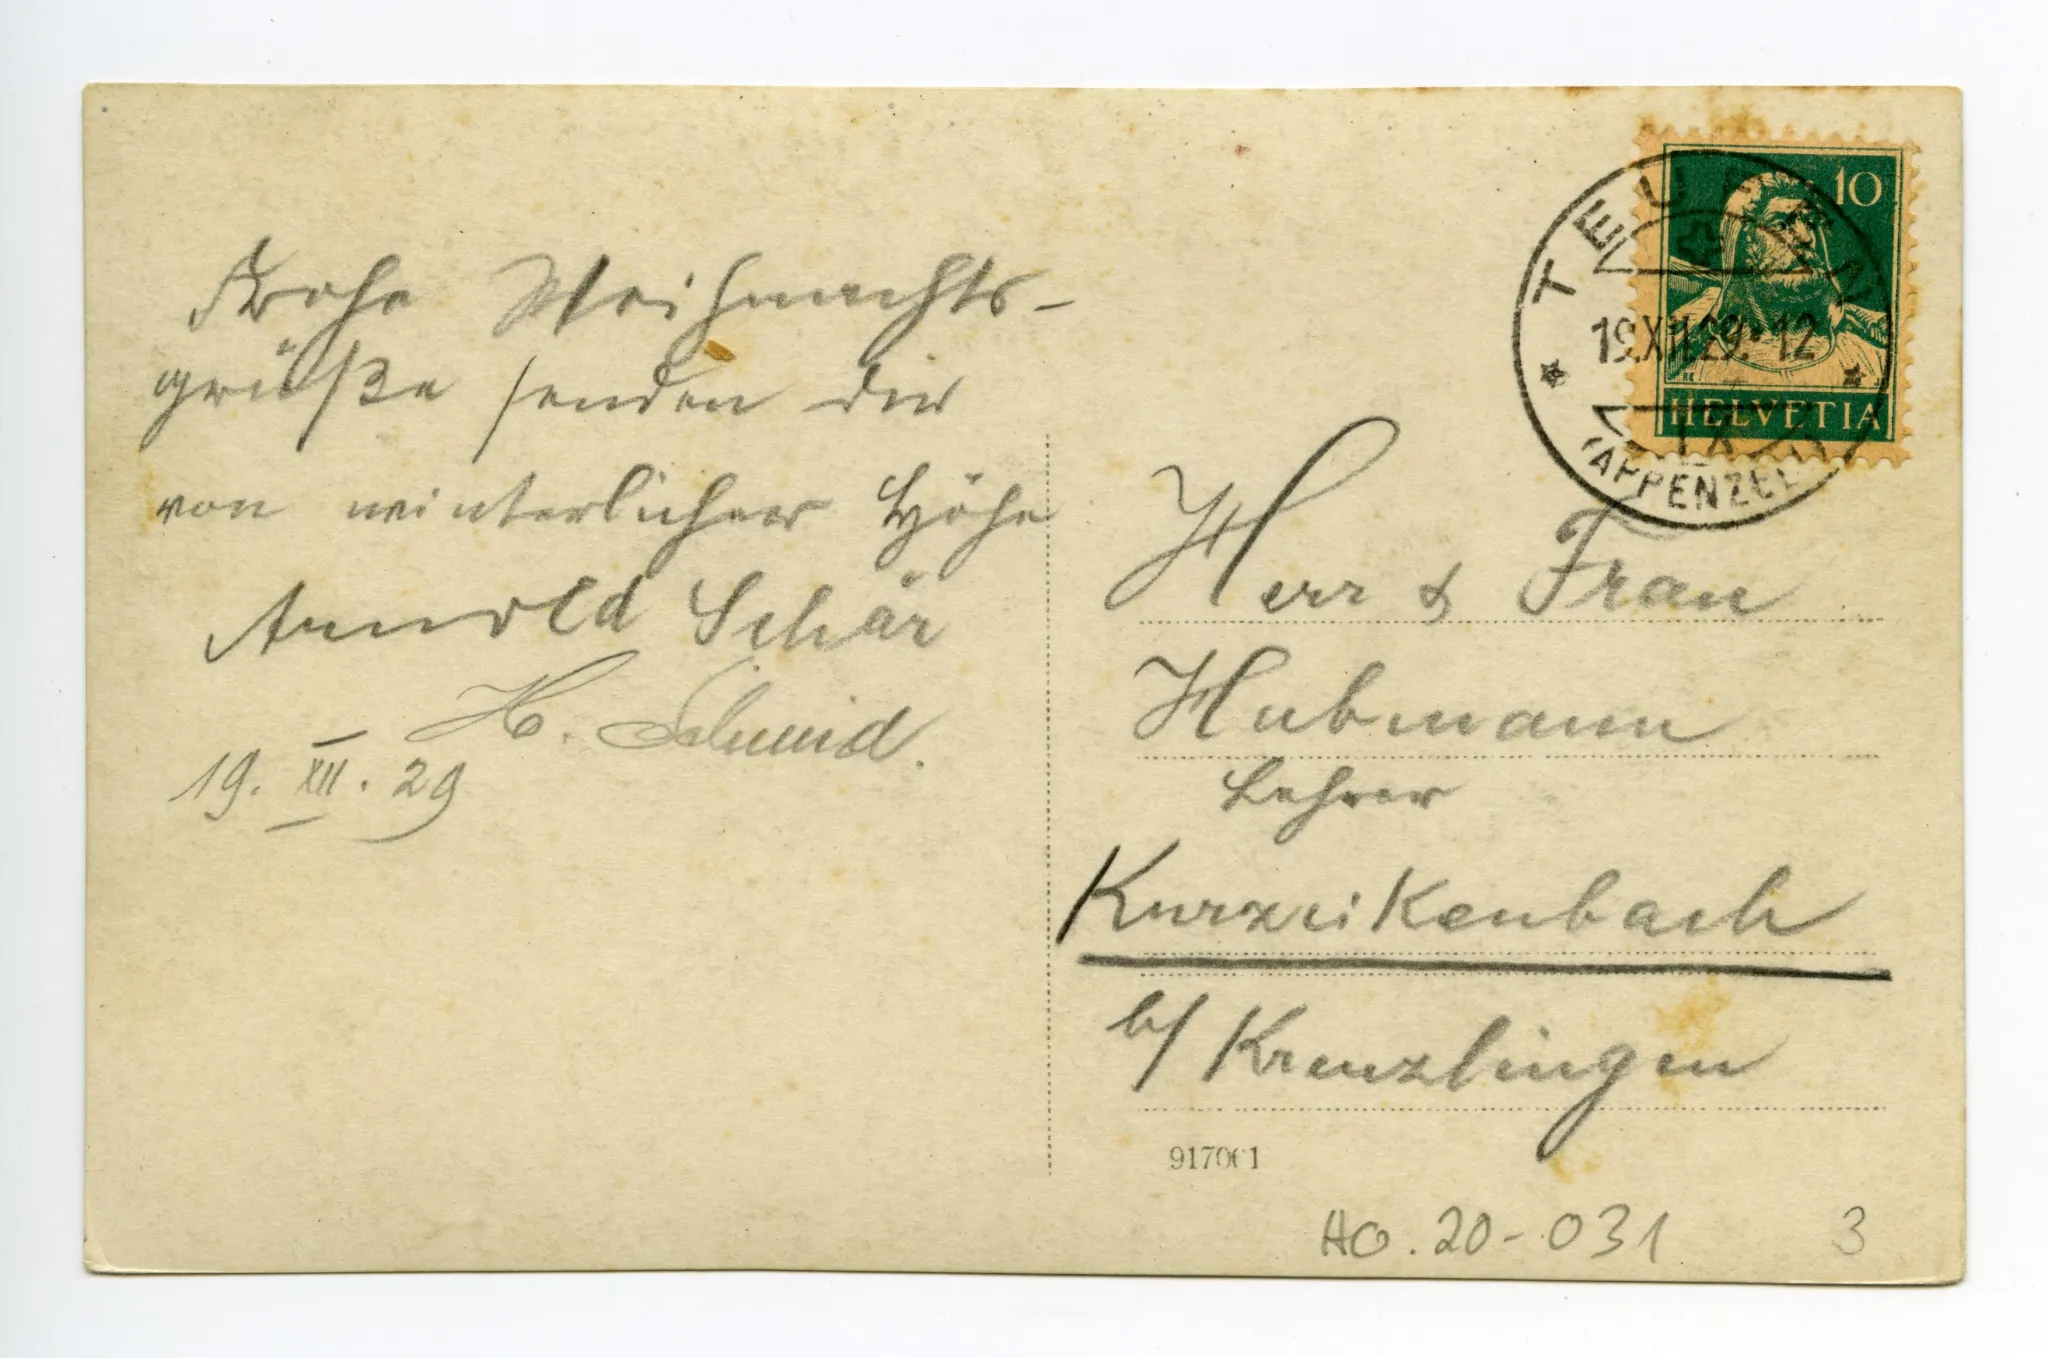 Frohe Weihnachts-
grüße senden dir
von winterlicher Höhe
Arnold Schär
H. Schmid.
19. XII. 29
TEUFEN
19.XII.29.-12
(APPENZELL)
10
HELVETIA
Herr & Frau
Hubmann
Lehrer
Kurzrikenbach
b/ Kreuzlingen
917001
HO.20-031
3